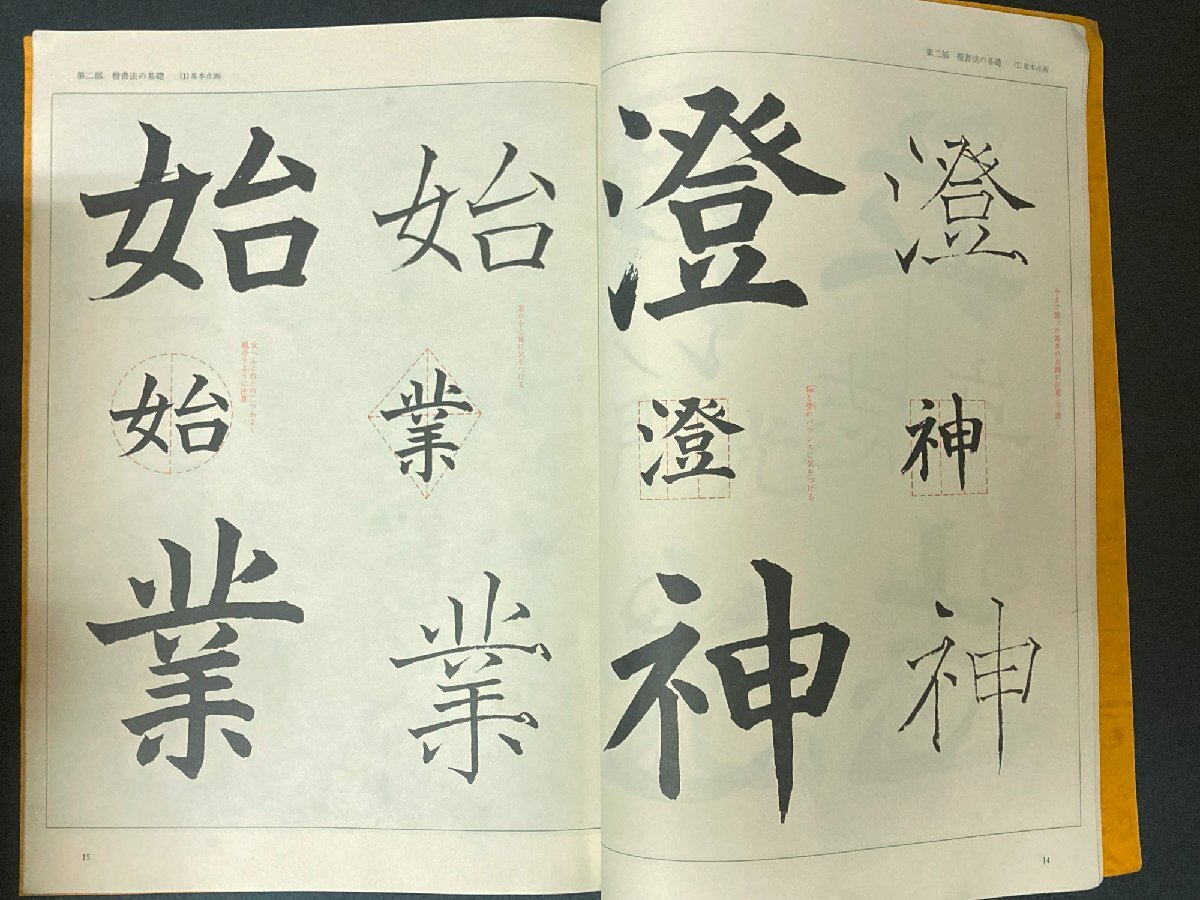 第二部 楷書法の基礎 (1)基本点画
澄
澄
神
神
神
今まで習った基本の点画に注意して書く
澄
偏と旁のバランスに気をつける
14
第二部 楷書法の基礎 (1)基本点画
始
始
業
業
業
業の中心線に気をつける
始
女へんと台との二つがよく
組合うように注意
15